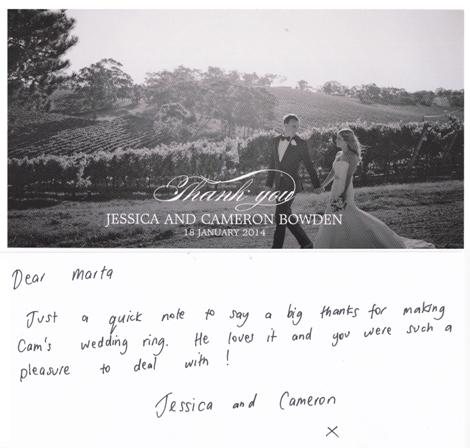 Thank you
JESSICA AND CAMERON BOWDEN
18 JANUARY 2014
Dear Marta
Just a quick note to say a big thanks for making
Cam's wedding ring. He loves it and you were such a
pleasure to deal with!
Jessica and Cameron
x